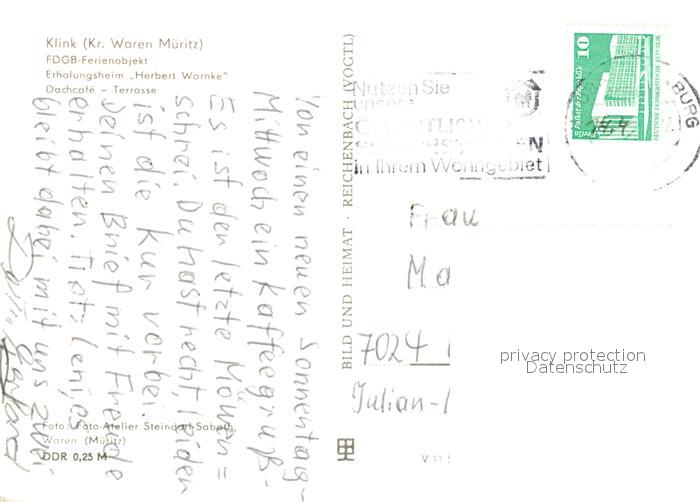 Klink (Kr. Waren Müritz)
FDGB-Ferienobjekt
Erholungsheim „Herbert Warnke"
Dachcafé – Terrasse
Von einen neuen Sonnentag-
Mittwoch ein Kaffeegruß-
Es ist der letzte Möwen=
schrei. Du hast recht, leider
ist die Kur vorbei.
Deinen Brief mit Freude
erhalten.
bleibt dabei mit uns zwei
Foto: Foto-Atelier Steindorf-Sabath,
Waren (Müritz)
DDR 0,25 M
BILD UND HEIMAT · REICHENBACH (VOGTL)
V 11
Nutzen Sie
unsere
in Ihrem Wohngebiet
10
Berlin Palast der Republik
DEUTSCHE DEMOKRATISCHE REPUBLIK
BURG
Frau
Ma
7024
Julian-
privacy protection
Datenschutz